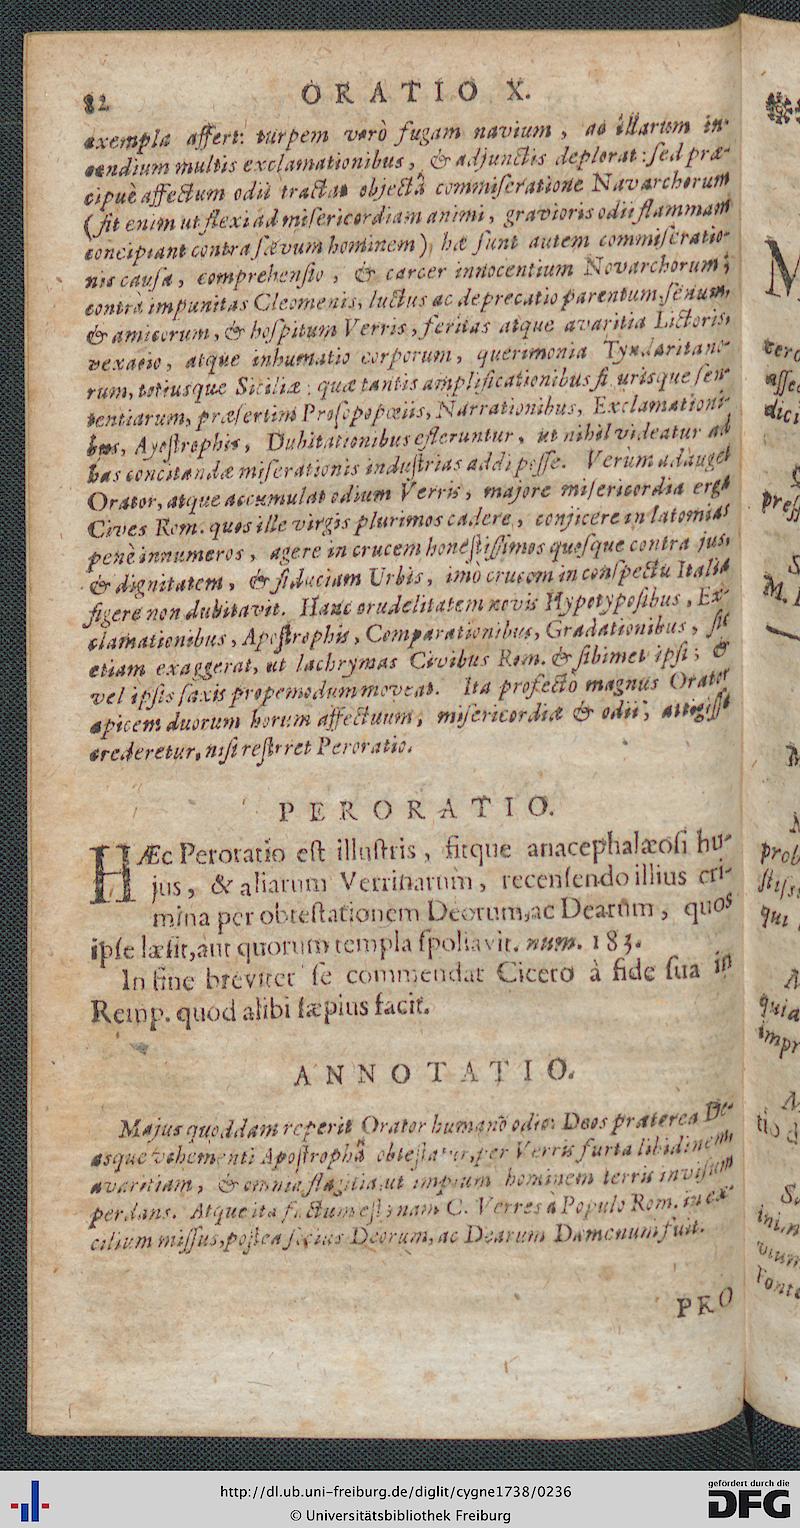 82 ORATIO X.
exempla affert: turpem verò fugam navium, ac illarum in-
cendium multis exclamationibus, & adjunctis deplorat: sed præ-
cipuè affectum odii tractat objectâ commiseratione Navarchorum
(fit enim ut flexi ad misericordiam animi, gravioris odii flammam
concipiant contra sævum hominem) hæ sunt autem commiseratio-
nis causa, comprehensio, & carcer innocentium Novarchorum;
contrà impunitas Cleomenis, luctus ac deprecatio parentum, senum,
& amicorum, & hospitum Verris, feritas atque avaritia Lictoris,
vexatio, atque inhumatio corporum, querimonia Tyndaritano-
rum, totiusque Siciliæ; quæ tantis amplificationibus figurisque sen-
tentiarum, præsertim Prosopopœiis, Narrationibus, Exclamationi-
bus, Apostrophis, Dubitationibus efferuntur, ut nihil videatur ad
has concitandæ miserationis industrias addi posse. Verum adauget
Orator, atque accumulat odium Verris, majore misericordia erga
Cives Rom. quos ille virgis plurimos cadere, conjicere in latomias
penè innumeros, agere in crucem honestissimos quosque contra jus,
& dignitatem, & fiduciam Urbis, imò crucem in conspectu Italiæ
figere non dubitavit. Hanc crudelitatem novis Hypotyposibus, Ex-
clamationibus, Apostrophis, Comparationibus, Gradationibus, sic
etiam exaggerat, ut lachrymas Civibus Rom. & sibimet ipsi; &
vel ipsis saxis propemodum moveat. Ita profecto magnus Orator
apicem duorum horum affectuum, misericordiæ & odii, attigisse
crederetur, nisi restrret Peroratio.
PERORATIO.
HÆc Peroratio est illustris, fitque anacephalæosi hu-
jus, & aliarum Verrinarum, recensendo illius cri-
mina per obtestationem Deorum, ac Dearum, quos
ipse læsit, aut quorum templa spoliavit. num. 183.
In fine breviter se commendat Cicero à fide sua in
Remp. quod alibi sæpius facit.
ANNOTATIO.
Majus quoddam reperit Orator humano odio: Deos præterea De-
asque vehementi Apostrophâ obtestatur, per Verris furta libidinem
avaritiam, & omnia flagitia, ut impium hominem terris invisum
perdans. Atque ita factum est; nam C. Verres à Populo Rom. in ex-
cilium missus, postea socius Deorum, ac Dearum Dæmonum fuit.
PRO
M
tero
asse
dici
press
S.
M.
prob
stiss
qui
quia
impr
tio d
S.
inim
vium
Ponte
http://dl.ub.uni-freiburg.de/diglit/cygne1738/0236
© Universitätsbibliothek Freiburg
gefördert durch die
DFG